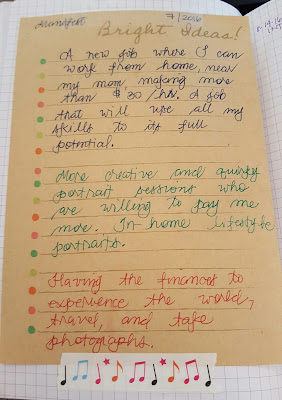 Manifest
7/2016
Bright Ideas!
A new job where I can
work from home, near
my mom making more
than $30/hr. A job
that will use all my
skills to its full
potential.
More creative and quirky
portrait sessions who
are willing to pay me
more. In-home lifestyle
portraits.
Having the finances to
experience the world,
travel, and take
photographs.